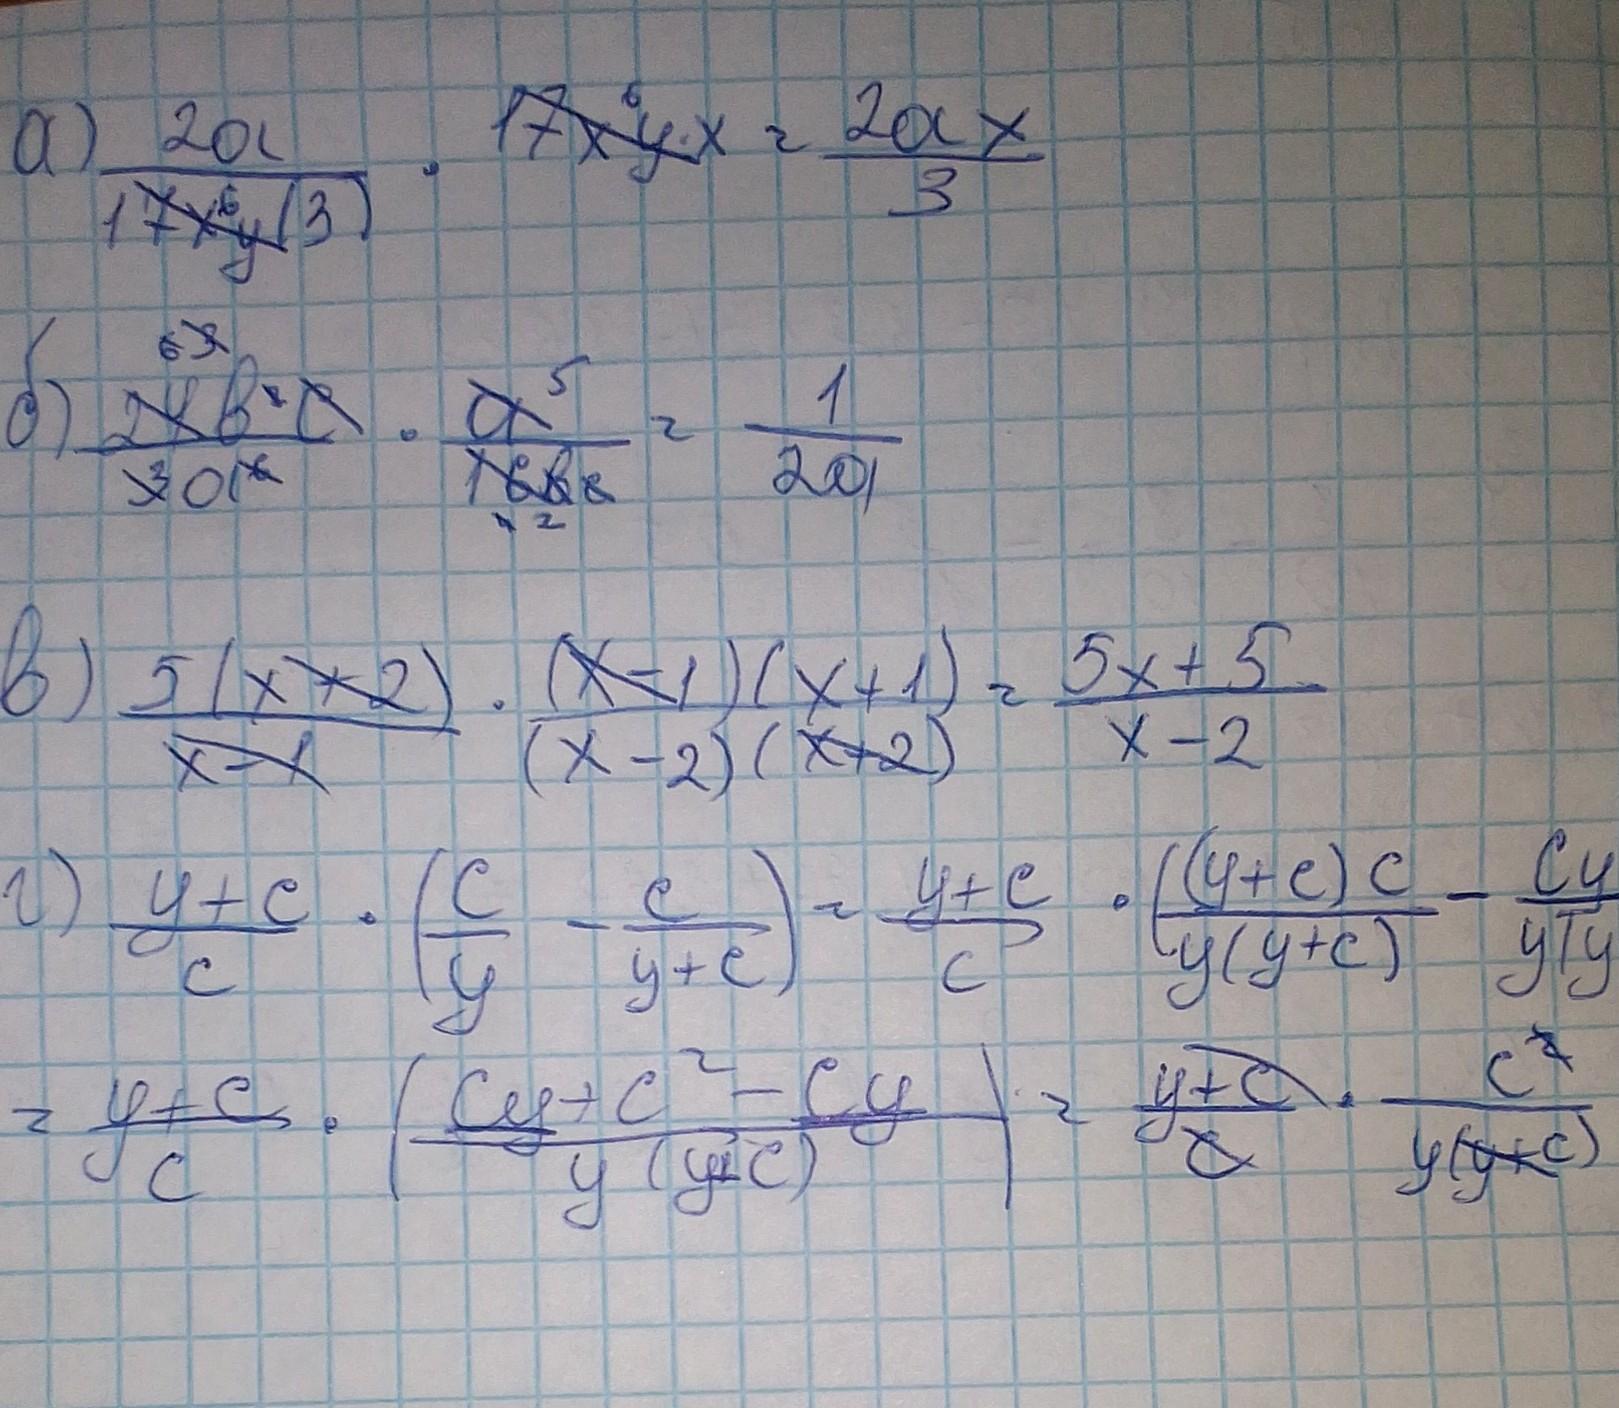 а) 2a / 17x⁶y(3) · 17x⁶y·x = 2ax / 3
б) 24b²c / 3a⁶ · a⁵ / 16bc = 1 / 2a
в) 5(x+2) / x-1 · (x-1)(x+1) / (x-2)(x+2) = 5x+5 / x-2
г) y+c / c · (c / y - c / y+c) = y+c / c · ((y+c)c / y(y+c) - cy / y(y
= y+c / c · (cy+c²-cy / y(y+c)) = y+c / c · c² / y(y+c)